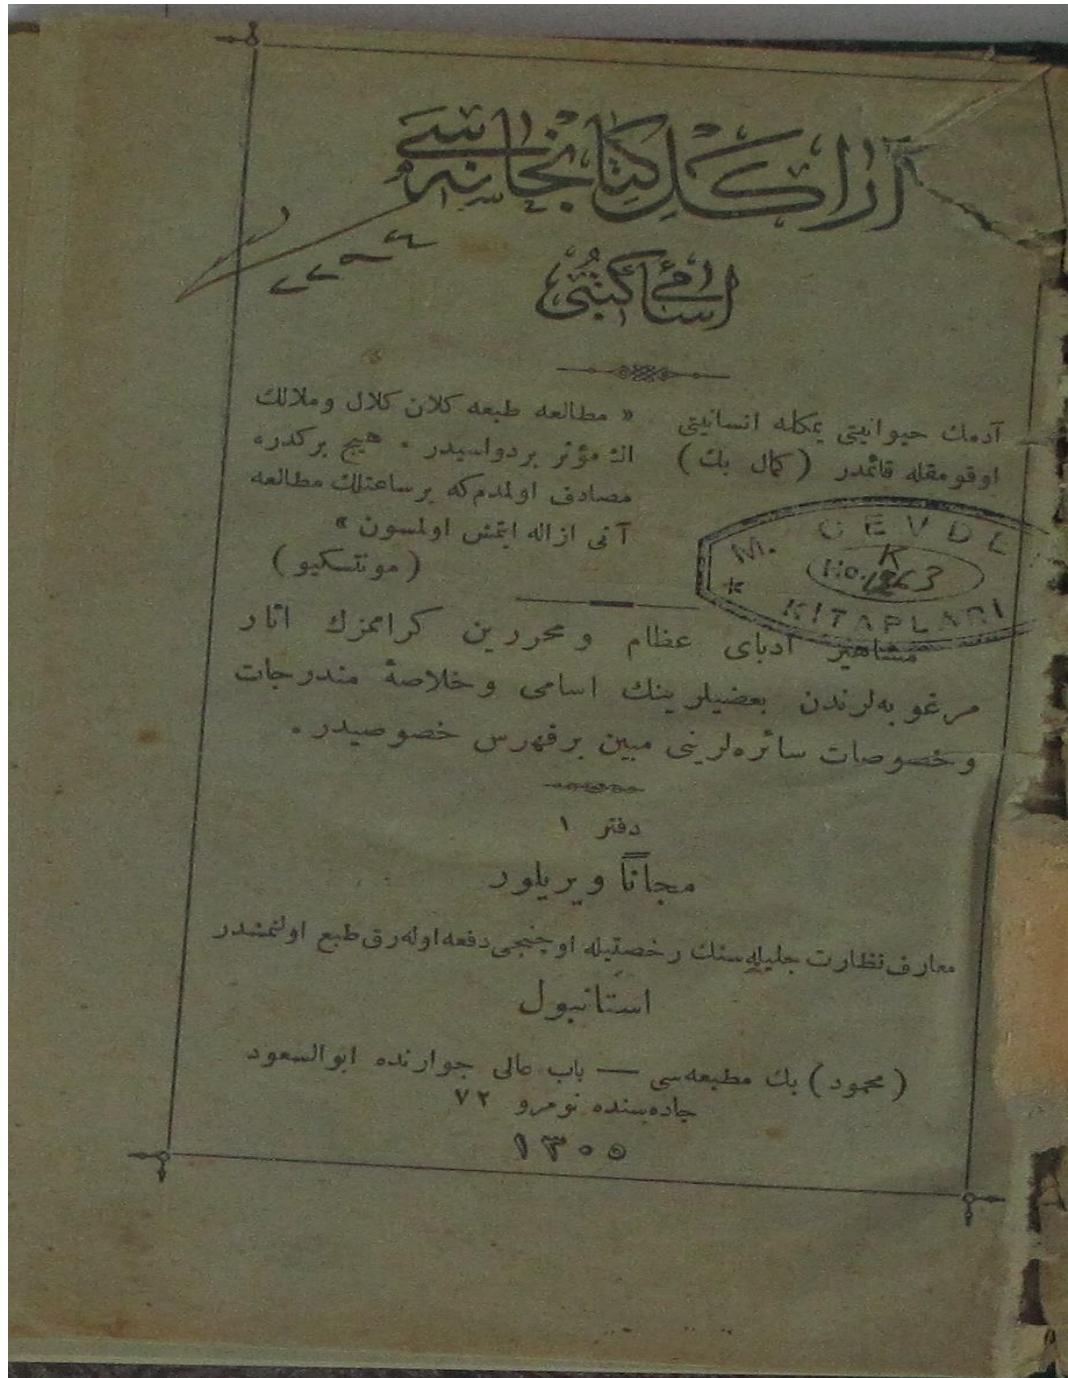 آراكل كتابخانه سی
اسامئ كتبی
آدمك حیوانیتی یمكله انسانیتی
اوقومقله قائمدر (كمال بك)
« مطالعه طبعه كلان كلال وملالك
اك مؤثر بردواسیدر . هیچ بركدره
مصادف اولمدم كه برساعتلك مطالعه
آنی ازاله ایتمش اولمسون »
(مونتسكیو)
M. CEVDE
K
No. 1263
KITAPLARI
مشاهیر ادبای عظام و محررین كراممزك اثار
مرغوبه لرندن بعضیلرینك اسامی وخلاصهٔ مندرجات
وخصوصات سائره لرینی مبین برفهرس خصوصیدر .
دفتر ١
مجاناً ویریلور
معارف نظارت جلیله سنك رخصتیله اوچنجی دفعه اوله رق طبع اولنمشدر
استانبول
(محمود) بك مطبعه سی — باب عالی جوارنده ابوالسعود
جاده سنده نومرو ٧٢
١٣٠٥